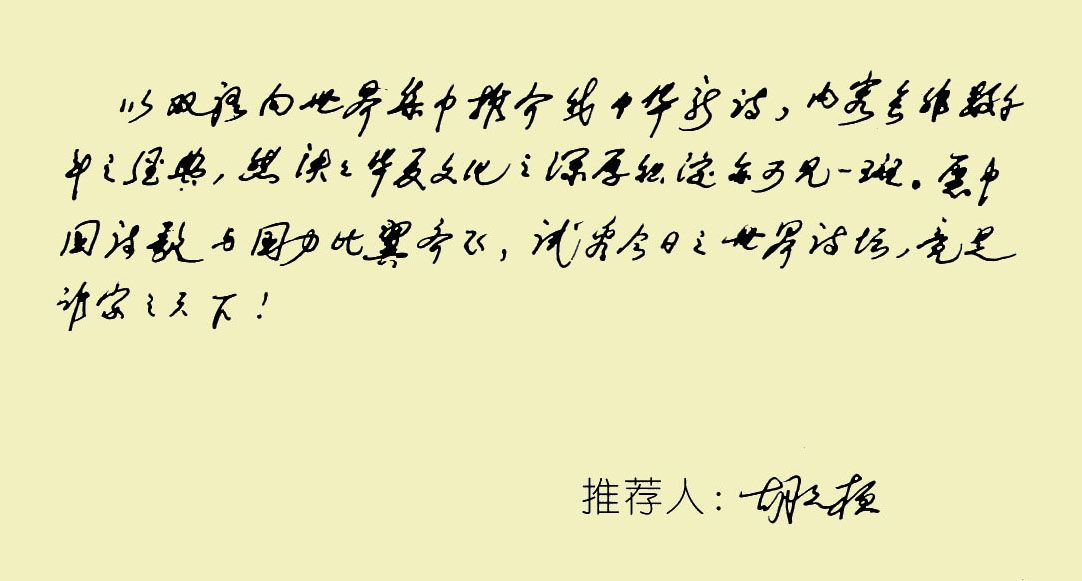 以双语向世界集中推介我中华新诗，内容虽非数千
年之经典，然泱泱华夏文化之深厚积淀亦可见一斑。愿中
国诗歌与国力比翼齐飞，试看今日之世界诗坛，竟是
谁家之天下！
推荐人：胡